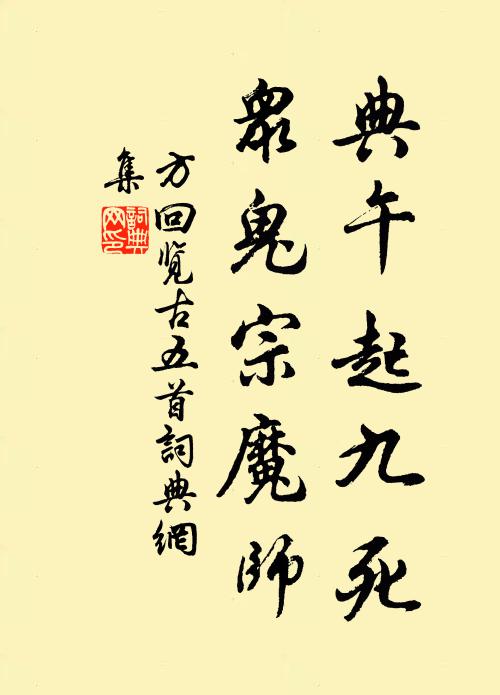 典午起九死
眾鬼宗魔師
方回览古五首詞典網
集
詞典
网印